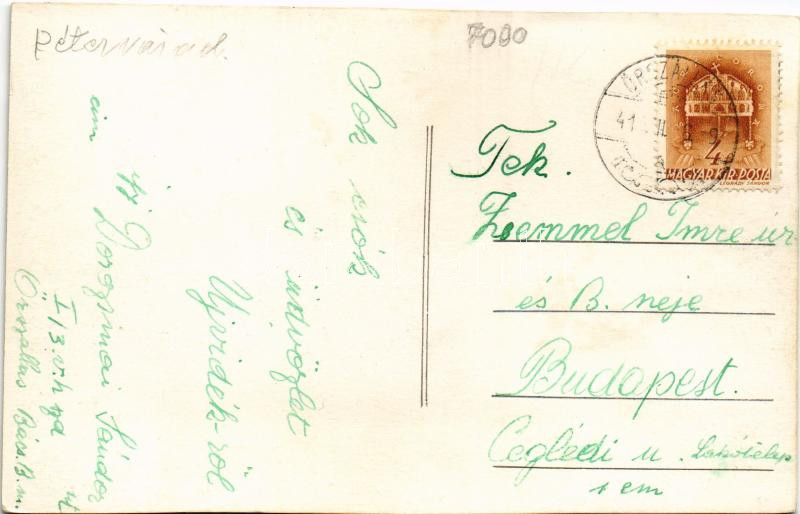 Pétervárad.
7000
Sok csók
és üdvözlet
Ujvidék-ről
ifj Dorozsmai Sándor
cim
I/3. v. h.
Őrszállás Bács. B. m.
ŐRSZÁL
41
MAGYAR KIR. POSTA
LÉGRÁDY SÁNDOR
4
Tek.
Zsemmel Imre úr
és B. neje
Budapest.
Ceglédi u. Lakótelep
1 em